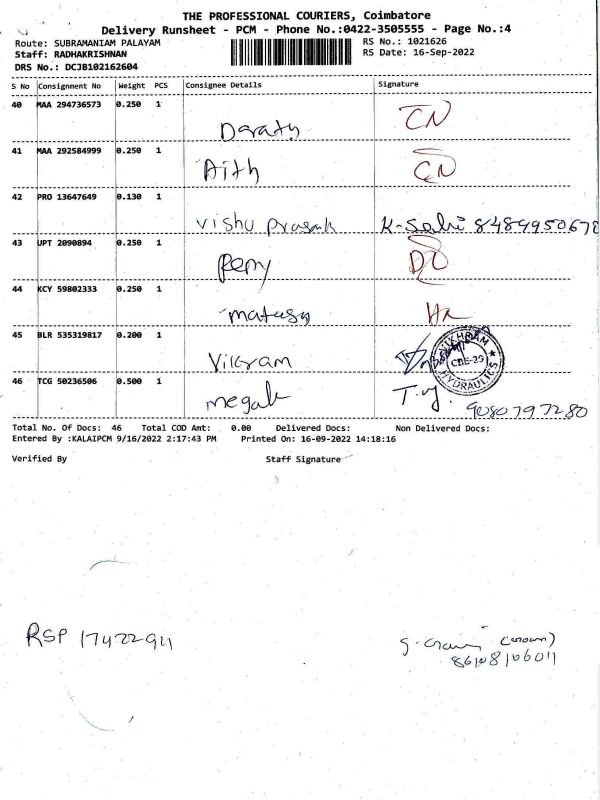 THE PROFESSIONAL COURIERS, Coimbatore
Delivery Runsheet - PCM - Phone No.:0422-3505555 - Page No.:4
Route: SUBRAMANIAM PALAYAM
RS No.: 1021626
Staff: RADHAKRISHNAN
RS Date: 16-Sep-2022
DRS No.: DCJB102162604
S No Consignment No Weight PCS Consignee Details Signature
40 MAA 294736573 0.250 1 CN
41 MAA 292584999 0.250 1 Aith CN
42 PRO 13647649 0.130 1 Vishu
43 UPT 2090894 0.250 1
44 KCY 59802333 0.250 1
45 BLR 535319817 0.200 1 Vikram VIKHRAM HYDRAULICS CBE-29
46 TCG 50236506 0.500 1 T.y.
9080797280
Total No. Of Docs: 46 Total COD Amt: 0.00 Delivered Docs: Non Delivered Docs:
Entered By :KALAIPCM 9/16/2022 2:17:43 PM Printed On: 16-09-2022 14:18:16
Verified By Staff Signature
RSP 17422911
8610810601